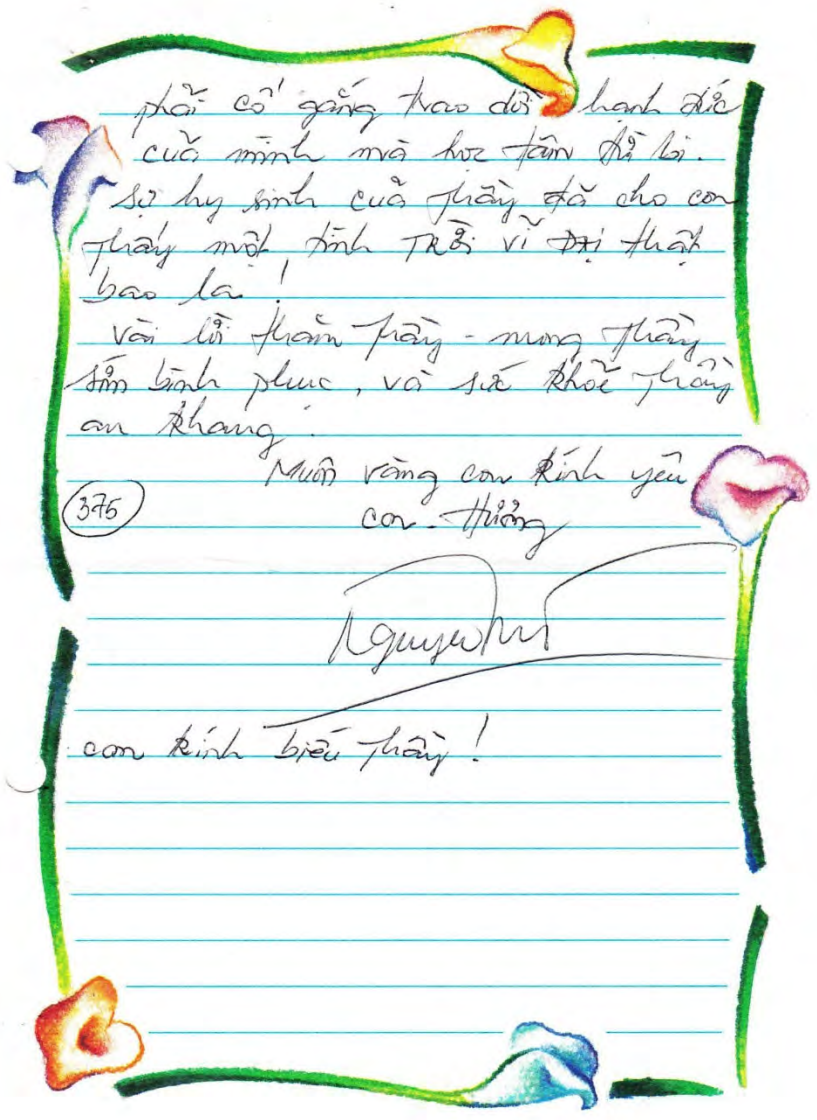 phải cố gắng trao dồi hạnh đức
cuả mình mà học tâm từ bi.
sự hy sinh cuả Thầy đã cho con
Thấy một tình TRỜi vĩ Đại thật
bao la!
vài lời thăm Thầy - mong Thầy
sớm bình phục, và sức khoẻ Thầy
an khang!
Muôn vàng con kính yêu
375
con - Hưởng
Nguyen
con kính biếu Thầy!